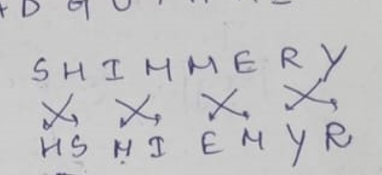 S H I M M E R Y
H S M I E M Y R